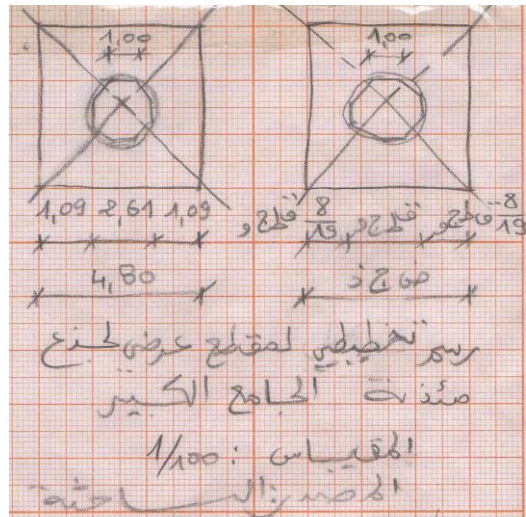 1,00 1,00
1,09 2,61 1,09
8/19 8/19
4,80
رسم تخطيطي لمقطع عرضي لجذع
مئذنة الجامع الكبير
المقياس : 1/100
المصدر: الباحثة